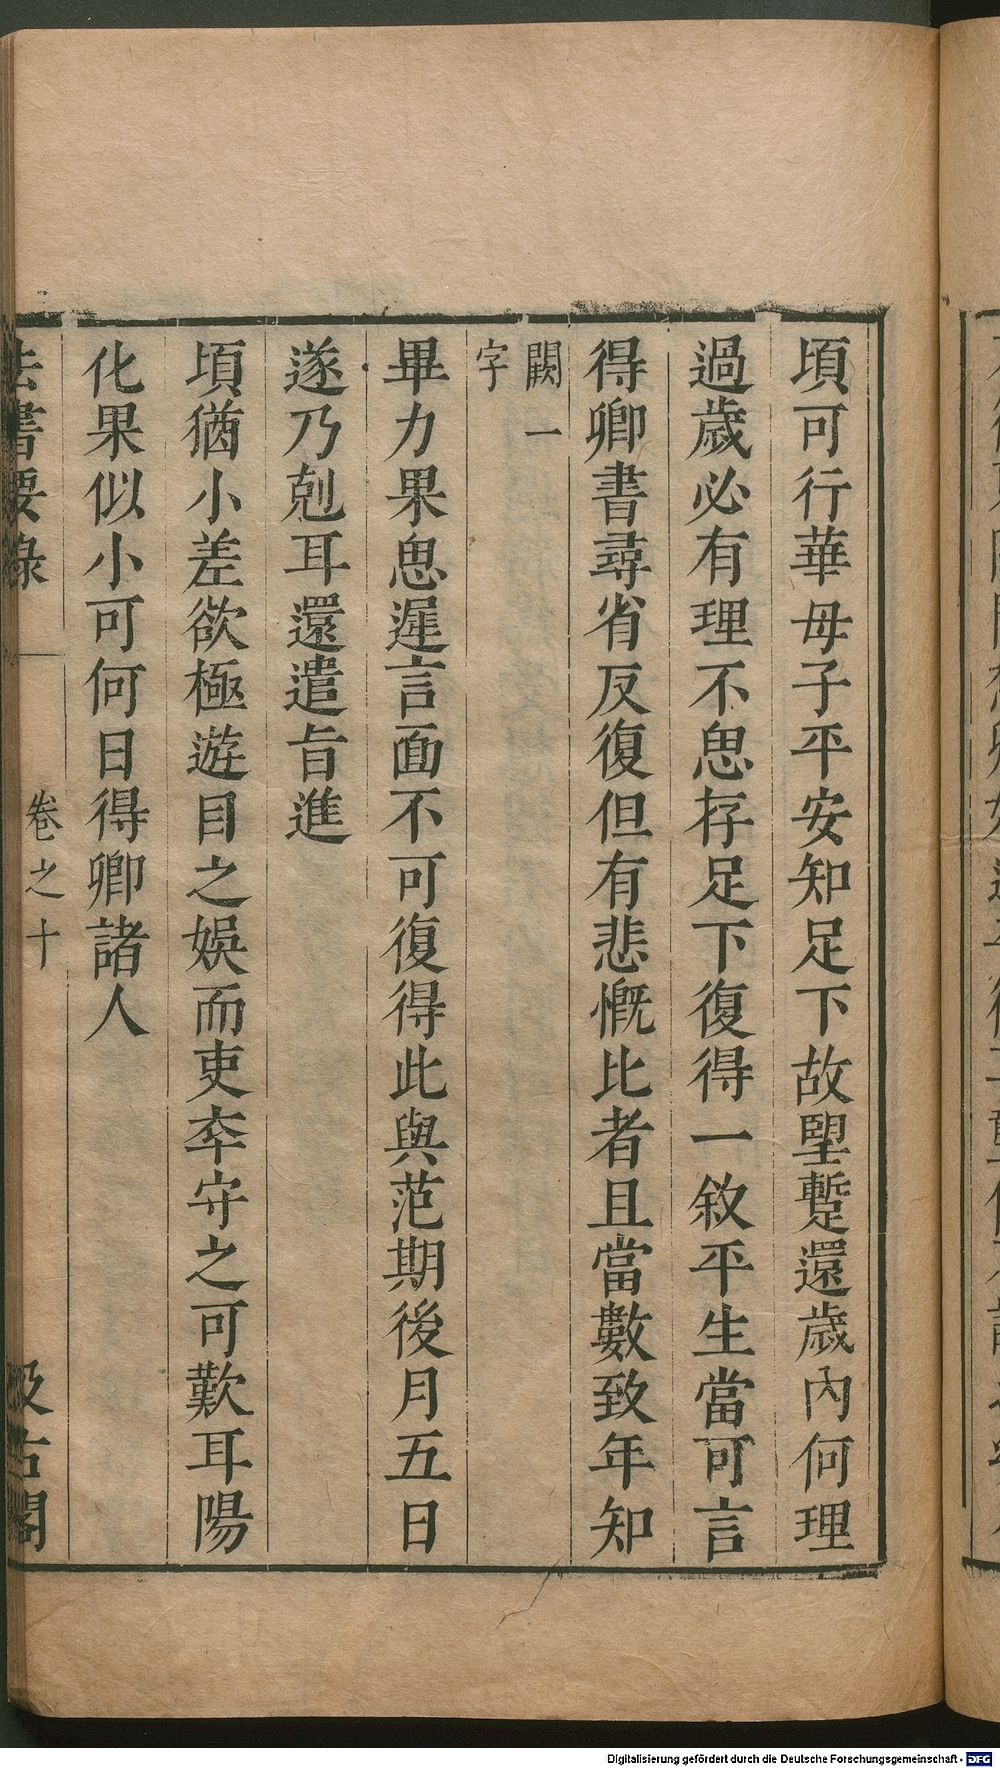 頃可行華母子平安知足下故朢蹔還歲內何理
過歲必有理不思存足下復得一敘平生當可言
得卿書尋省反復但有悲慨比者且當數致年知
闕一
字
畢力果思遲言面不可復得此與范期後月五日
遂乃剋耳還遣旨進
頃猶小差欲極遊目之娛而吏卒守之可歎耳陽
化果似小可何日得卿諸人
法書要錄
卷之十
汲古閣
Digitalisierung gefördert durch die Deutsche Forschungsgemeinschaft - DFG